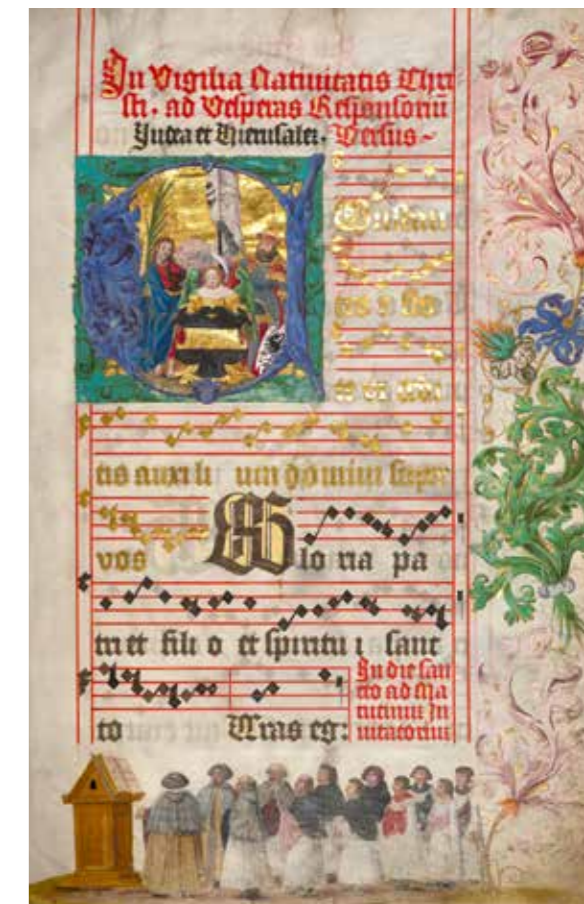 In Vigilia Natiuitatis Chri
sti. ad Vesperas Responsoriū
Iudea et Hierusalez. Versus~
COnstan
tes e sto
te vi debi
tis auxi li um domini super
vos Glo ria pa
tri et fili o et spiritu i sanc
to Cras eg:
In die san
cto ad Ma
tutinū In
uitatoriū